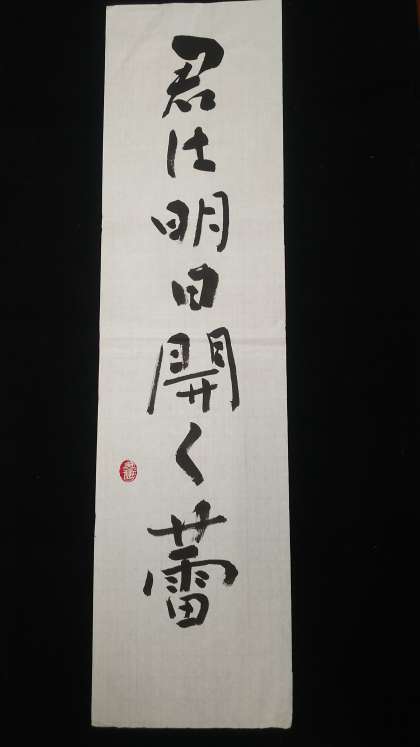 君は明日開く蕾